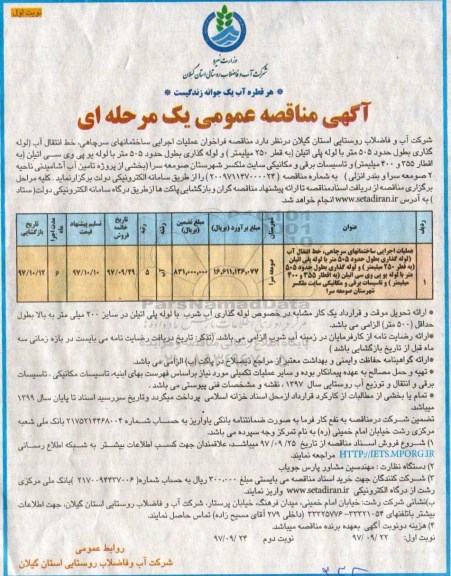 نوبت اول
وزارت نیرو
شرکت آب و فاضلاب روستایی استان گیلان
* هر قطره آب یک جوانه زندگیست *
آگهی مناقصه عمومی یک مرحله ای
شرکت آب و فاضلاب روستایی استان گیلان درنظر دارد مناقصه فراخوان عملیات اجرایی ساختمانهای سرچاهی، خط انتقال آب (لوله
گذاری بطول حدود ۵۰۵ متر با لوله پلی اتیلن (به قطر ۲۵۰ میلیمتر) و لوله گذاری بطول حدود ۵۰۵ متر با لوله یو پی وی سی اتیلن (به
اقطار ۳۵۵ و ۴۰۰ میلیمتر) و تاسیسات برقی و مکانیکی سایت ملکسر شهرستان صومعه سرا (بخشی از پروژه تامین آب آشامیدنی ناحیه
۲ صومعه سرا و بندر انزلی) به شماره مناقصه (۲۰۰۹۷۱۱۳۷۰۰۰۰۲۴) را از طریق سامانه الکترونیکی دولت برگزارنماید. کلیه مراحل
برگزاری مناقصه از دریافت اسنادمناقصه تا ارائه پیشنهاد مناقصه گران و بازگشایی پاکت ها ازطریق درگاه سامانه الکترونیکی دولت (ستاد
) به آدرس www.setadiran.ir انجام خواهد شد.
ردیف
عنوان
شهرستان
مبلغ برآورد (بریال)
مبلغ تضمین (بریال)
رشته
رتبه
تاریخ خاتمه فروش
تسلیم پیشنهاد قیمت
مدت اجرا ماه
تاریخ بازگشایی
۱
عملیات اجرایی ساختمانهای سرچاهی، خط انتقال آب
(لوله گذاری بطول حدود ۵۰۵ متر با لوله پلی اتیلن
(به قطر ۲۵۰ میلیمتر) و لوله گذاری بطول حدود ۵۰۵
متر با لوله یو پی وی سی اتیلن (به اقطار ۳۵۵ و ۴۰۰
میلیمتر) و تاسیسات برقی و مکانیکی سایت ملکسر
شهرستان صومعه سرا
صومعه سرا
۱۶,۶۱۱,۱۳۶,۰۷۷
۸۳۱,۰۰۰,۰۰۰
آب
۵
۹۷/۰۹/۲۹
۹۷/۱۰/۱۰
۶
۹۷/۱۰/۱۲
*ارائه تحویل موقت و قرارداد یک کار مشابه در خصوص لوله گذاری آب شرب با لوله پلی اتیلن در سایز ۲۰۰ میلی متر به بالا بطول
حداقل (۵۰۰ متر) الزامی می باشد.
*ارائه رضایت نامه از کارفرمایان در زمینه آب شرب الزامی می باشد. (تذکر: تاریخ دریافت رضایت نامه می بایست در بازه زمانی سه
ماه قبل از تاریخ بازگشایی باشد.)
*ارائه گواهینامه حفاظت و ایمنی و بهداشت معتبر از مراجع ذیصلاح (در پاکت ب) الزامی می باشد.
* تهیه و حمل مصالح به عهده پیمانکار بوده و سایر عملیات تکمیلی مورد نیاز براساس فهرست بهای ابنیه، تاسیسات مکانیکی، تاسیسات
برقی و انتقال و توزیع آب روستایی سال ۱۳۹۷، نقشه و مشخصات فنی پیوستی می باشد.
* تمام یا بخشی از مطالبات از کارکرد قرارداد ازمحل اسناد خزانه اسلامی پرداخت میگردد و تاریخ سررسید اسناد تا پایان سال ۱۳۹۹
میباشد.
تضمین شرکت درمناقصه به نفع کار فرما به صورت ضمانتنامه بانکی یاواریز به حساب شماره ۲۱۷۵۲۱۴۴۶۸۰۰۴ بانک ملی شعبه
مرکزی رشت خیابان امام خمینی (ره) به نام تمرکز وجوه سپرده می باشد.
۱) شروع فروش اسناد مناقصه از تاریخ ۹۷/۰۹/۲۵ میباشد، علاقمندان جهت کسب اطلاعات بیشتر به شبکه اطلاع رسانی
HTTP://IETS.MPORG.IR مراجعه نمایند.
۲) دستگاه نظارت: مهندسین مشاور پارس جویاب
۳) شرکت کنندگان جهت خرید اسناد مناقصه می بایستی مبلغ ۲۰۰.۰۰۰ ریال به حساب شماره ۲۱۷۰۰۹۴۳۳۷۰۰۶ بانک ملی مرکزی
رشت از درگاه الکترونیکی www.setadiran.ir واریز نمایند.
ب) نشانی شرکت: رشت، خیابان امام خمینی، میدان فرهنگ، خیابان پرستار، شرکت آب و فاضلاب روستایی استان گیلان، جهت اطلاعات
بیشتر باتلفنهای ۳۳۳۲۱۰۵۴-۳۳۳۲۵۷۷۶ (داخلی ۲۷۹ آقای مسیح زاده) تماس حاصل نمایند.
۴) هزینه دونوبت آگهی بعهده برنده مناقصه میباشد.
نوبت اول: ۹۷/۰۹/۲۲ نوبت دوم ۹۷/۰۹/۲۴
روابط عمومی
شرکت آب وفاضلاب روستایی استان گیلان